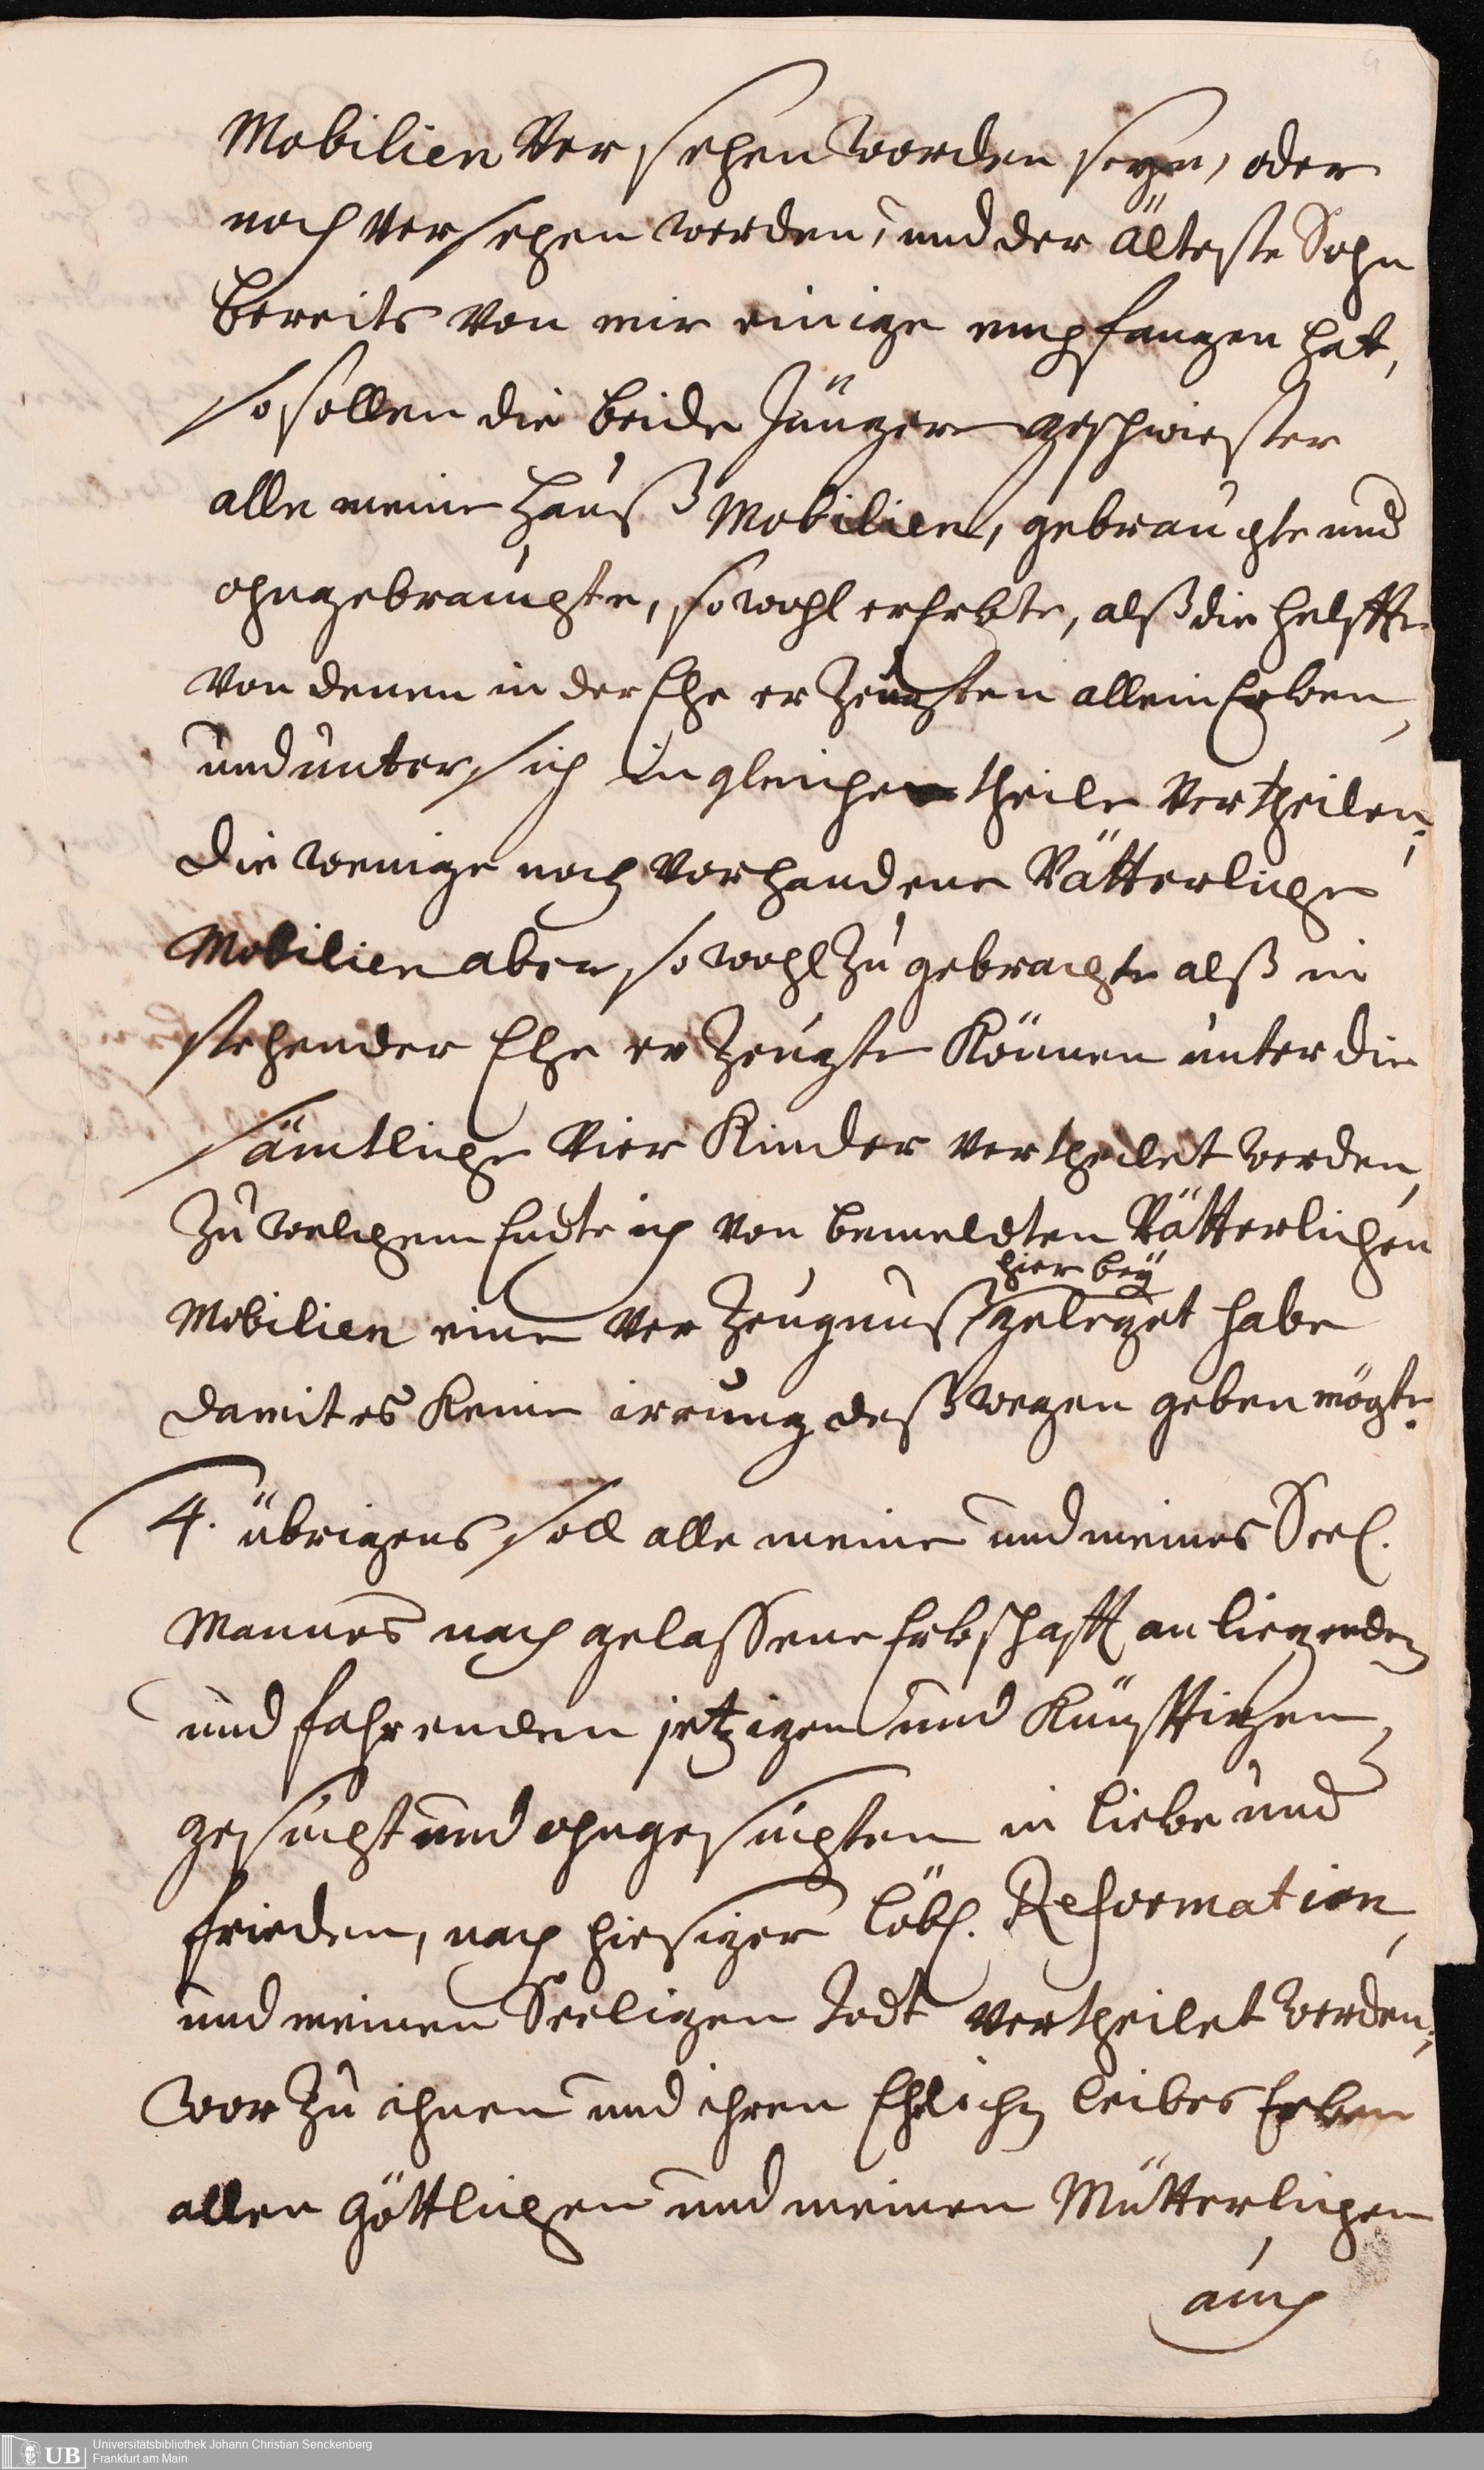 Mobilien Versehen worden seyn, oder
noch versehen werden, und der älteste Sohn
bereits von mir einige empfangen hat,
so sollen die beide Jüngere geschwister
alle meine Hauß Mobilien, gebrauchte und
ohngebrauchte, sowohl ererbte, alß die helffte
von denen in der Ehe erzeugten allein Erben,
und unter sich in gleiche theile Vertheilen,
die wenige noch Vorhandene Vätterliche
Mobilien aber, sowohl Zugebrachte alß in
stehender Ehe erzeugte Können unter die
sämtliche Vier Kinder vertheilet werden,
Zu welchem Endte ich von bemeldten Vätterlichen
hier bey
Mobilien eine VerZeugnuß geleget habe
damit es Keine irrung deßwegen geben mögte.
4. übrigens soll alle meine und meines Seel.
Mannes nachgelassene Erbschafft an liegenden
und fahrenden jetzigen und Künfftigen,
gesucht und ohngesuchten in liebe und
frieden, nach hiesiger löbl. Reformation,
und meinen Seeligen Todt vertheilet werden,
worzu ihnen und ihren Ehlichen leibes Erben
allen göttlichen und meinen Mütterlichen
auch
UB
Universitätsbibliothek Johann Christian Senckenberg
Frankfurt am Main